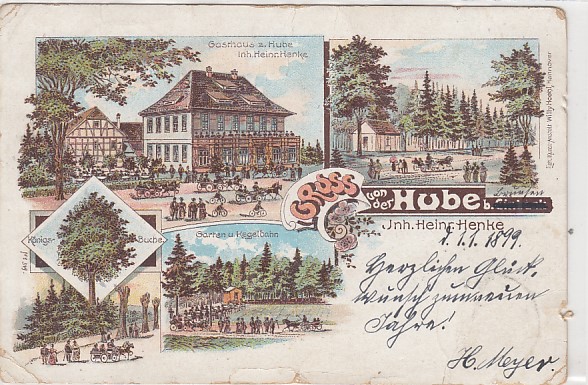 Gasthaus z. Hube
Inh. Heinr. Henke
GRUSS
von der Hube b.
Inh. Heinr. Henke
Königs- Buche
Garten u. Kegelbahn
d. 1.1.1899.
Herzlichen Glück-
wunsch zum neuen
Jahre!
H. Meyer.